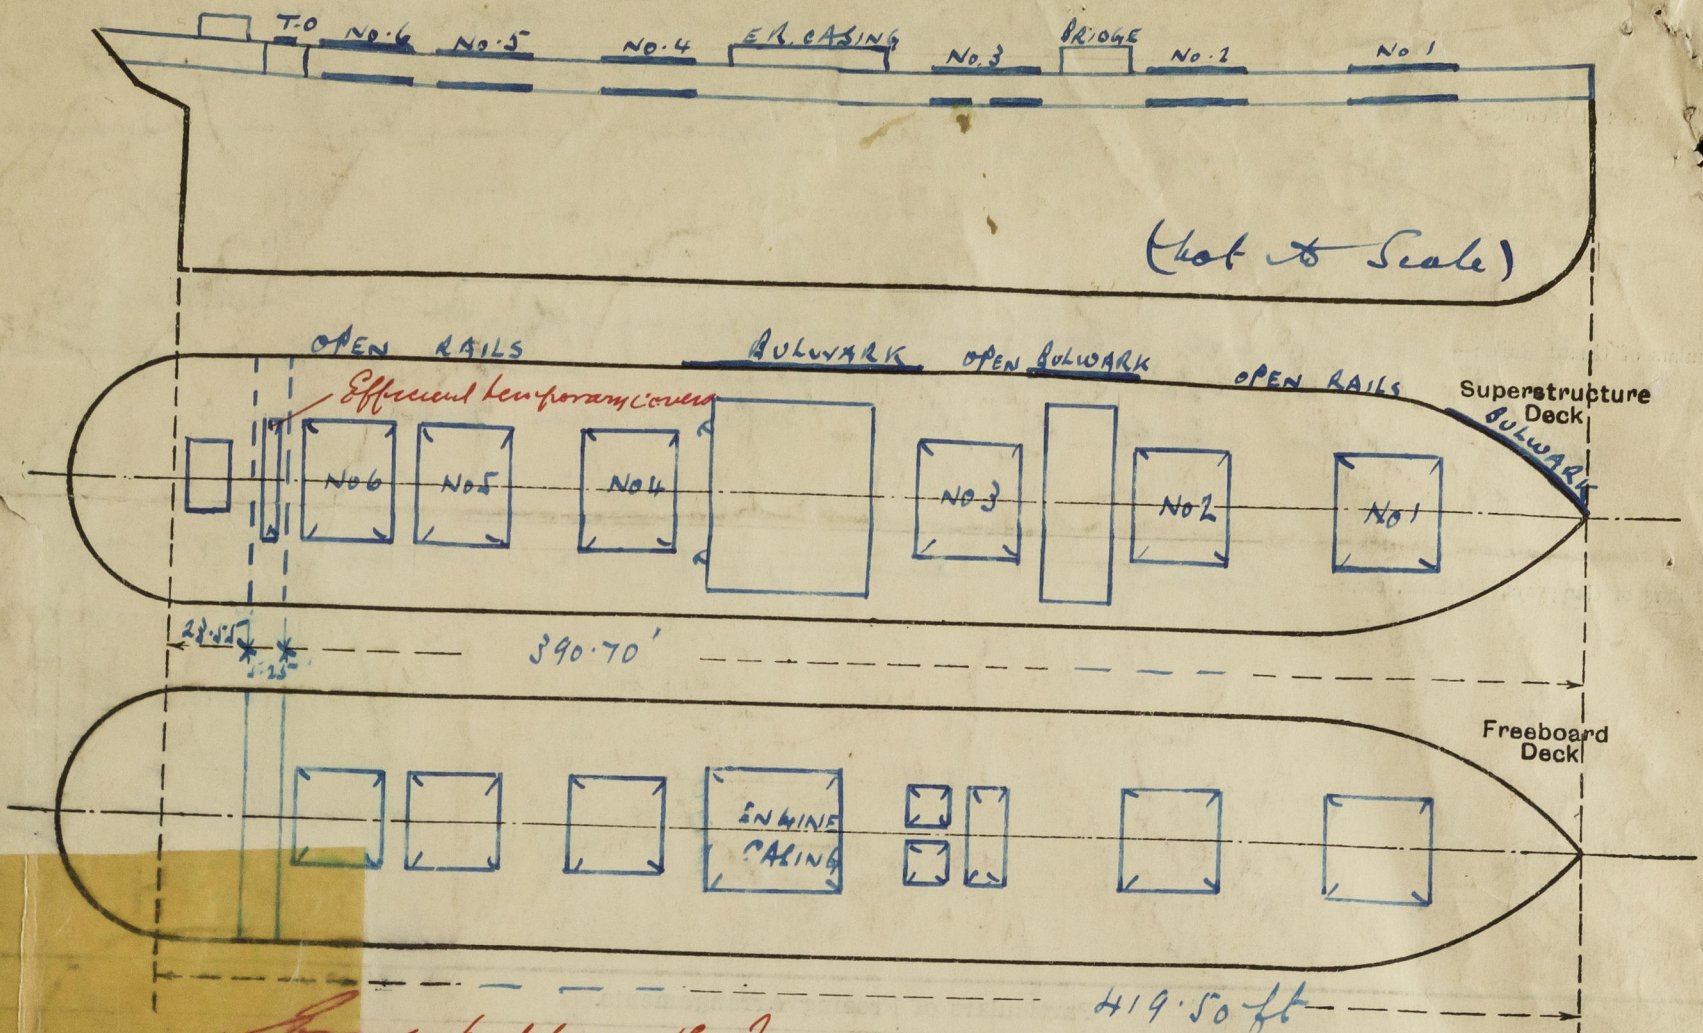 T.O No.6 No.5 No.4 E.R. CASING No.3 BRIDGE No.2 No 1
(Not to Scale)
OPEN RAILS BULWARK OPEN BULWARK OPEN RAILS
Superstructure
Deck
BULWARK
Efficient temporary covers
No6 No5 No4 No3 No2 No1
23.55' 390.70'
5.25'
Freeboard
Deck
ENGINE
CASING
419.50 ft